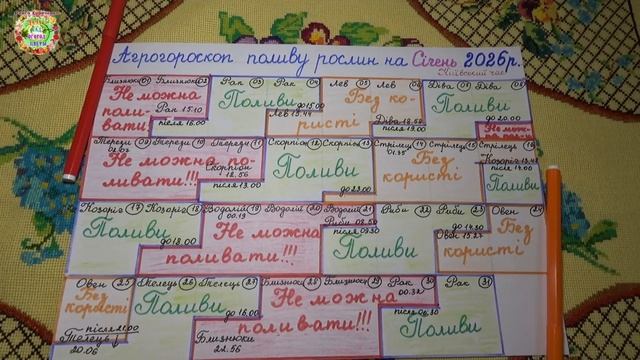 Агрогороскоп поливу рослин на Січень 2026р.
Київський час
Близнюки 01 Близнюки 02 Рак 03 Рак 04 Лев 05 Лев 06 Діва 07 Діва 08
Не можна поливати
Рак 15.10
після 16.00
Поливи
до 15.00
Лев 15.44
Без користі
Діва 18.58
після 19.00
Поливи
до 20.00
Терези 09 Терези 10 Терези 11 Скорпіон 12 Скорпіон 13 Стрілець 14 Стрілець 15 Стрілець 16
Не можна поливати!!!
Скорпіон 12.56
після 13.00
Поливи
до 23.00
01.35
Без користі
Козоріг 13.48
після 14.00
Поливи
Козоріг 17 Козоріг 18 Водолій 19 Водолій 20 Водолій 21 Риби 22 Риби 23 Овен 24
Поливи
до 18.00
00.13
Не можна поливати!!!
Риби 08.50
після 09.30
Поливи
до 14.30
Овен 15.27
Без користі
Овен 25 Телець 26 Телець 27 Близнюки 28 Близнюки 29 Рак 30 Рак 31
Без користі
після 21.00
Телець
20.06
Поливи
до 16.00
Близнюки
22.56
Не можна поливати!!!
00.32
Поливи